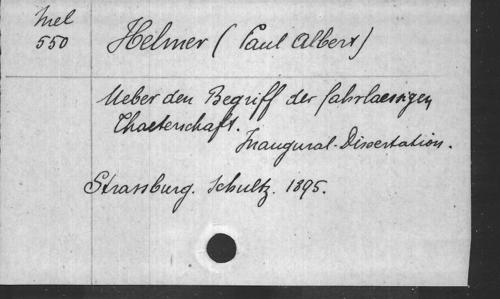 Mel
550
Helmer (Paul Albert)
Ueber den Begriff der fahrlaessigen
Thaeterschaft.
Inaugural-Dissertation.
Strassburg. Schultz. 1895.